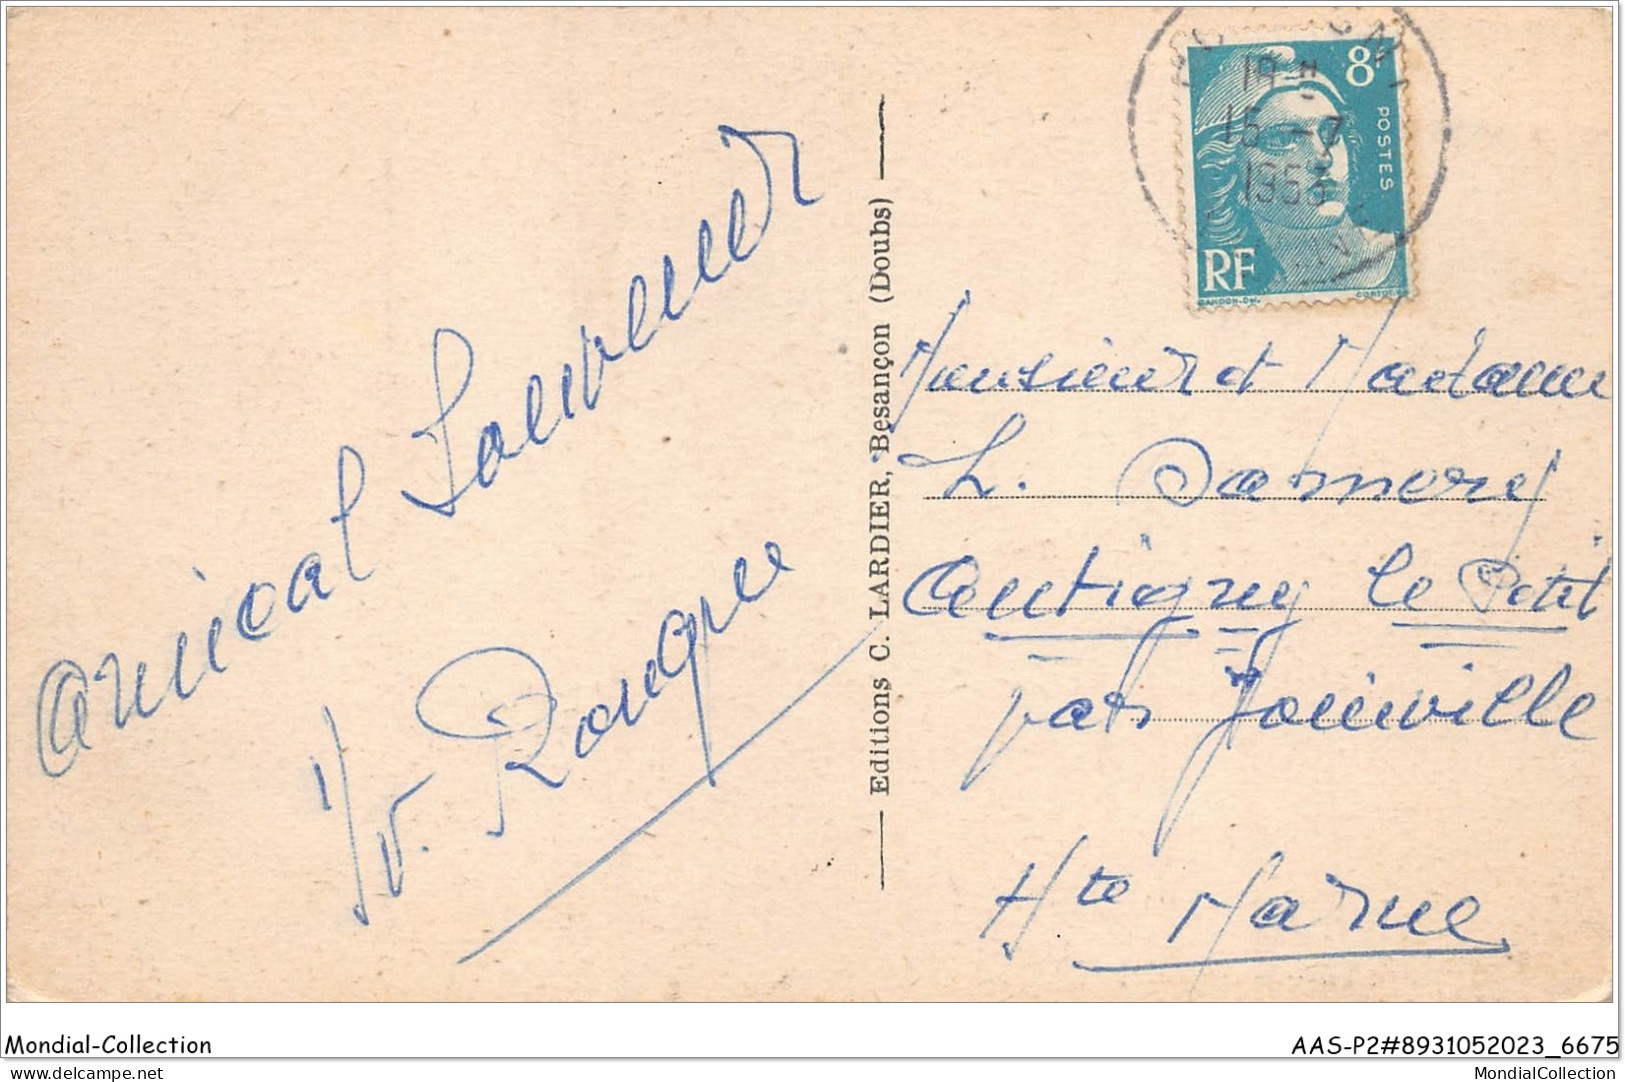 Amical Souvenir
Yv. Rouque
Editions C. LARDIER, Besançon (Doubs)
8F
POSTES
RF
GANDON.DEL.
CORTOT
19 H
15 -7
1953
Monsieur et Madame
L. Damery
Autigny le Petit
par Joinville
Hte Marne
Mondial-Collection
AAS-P2#8931052023_6675
delcampe.net
MondialCollection